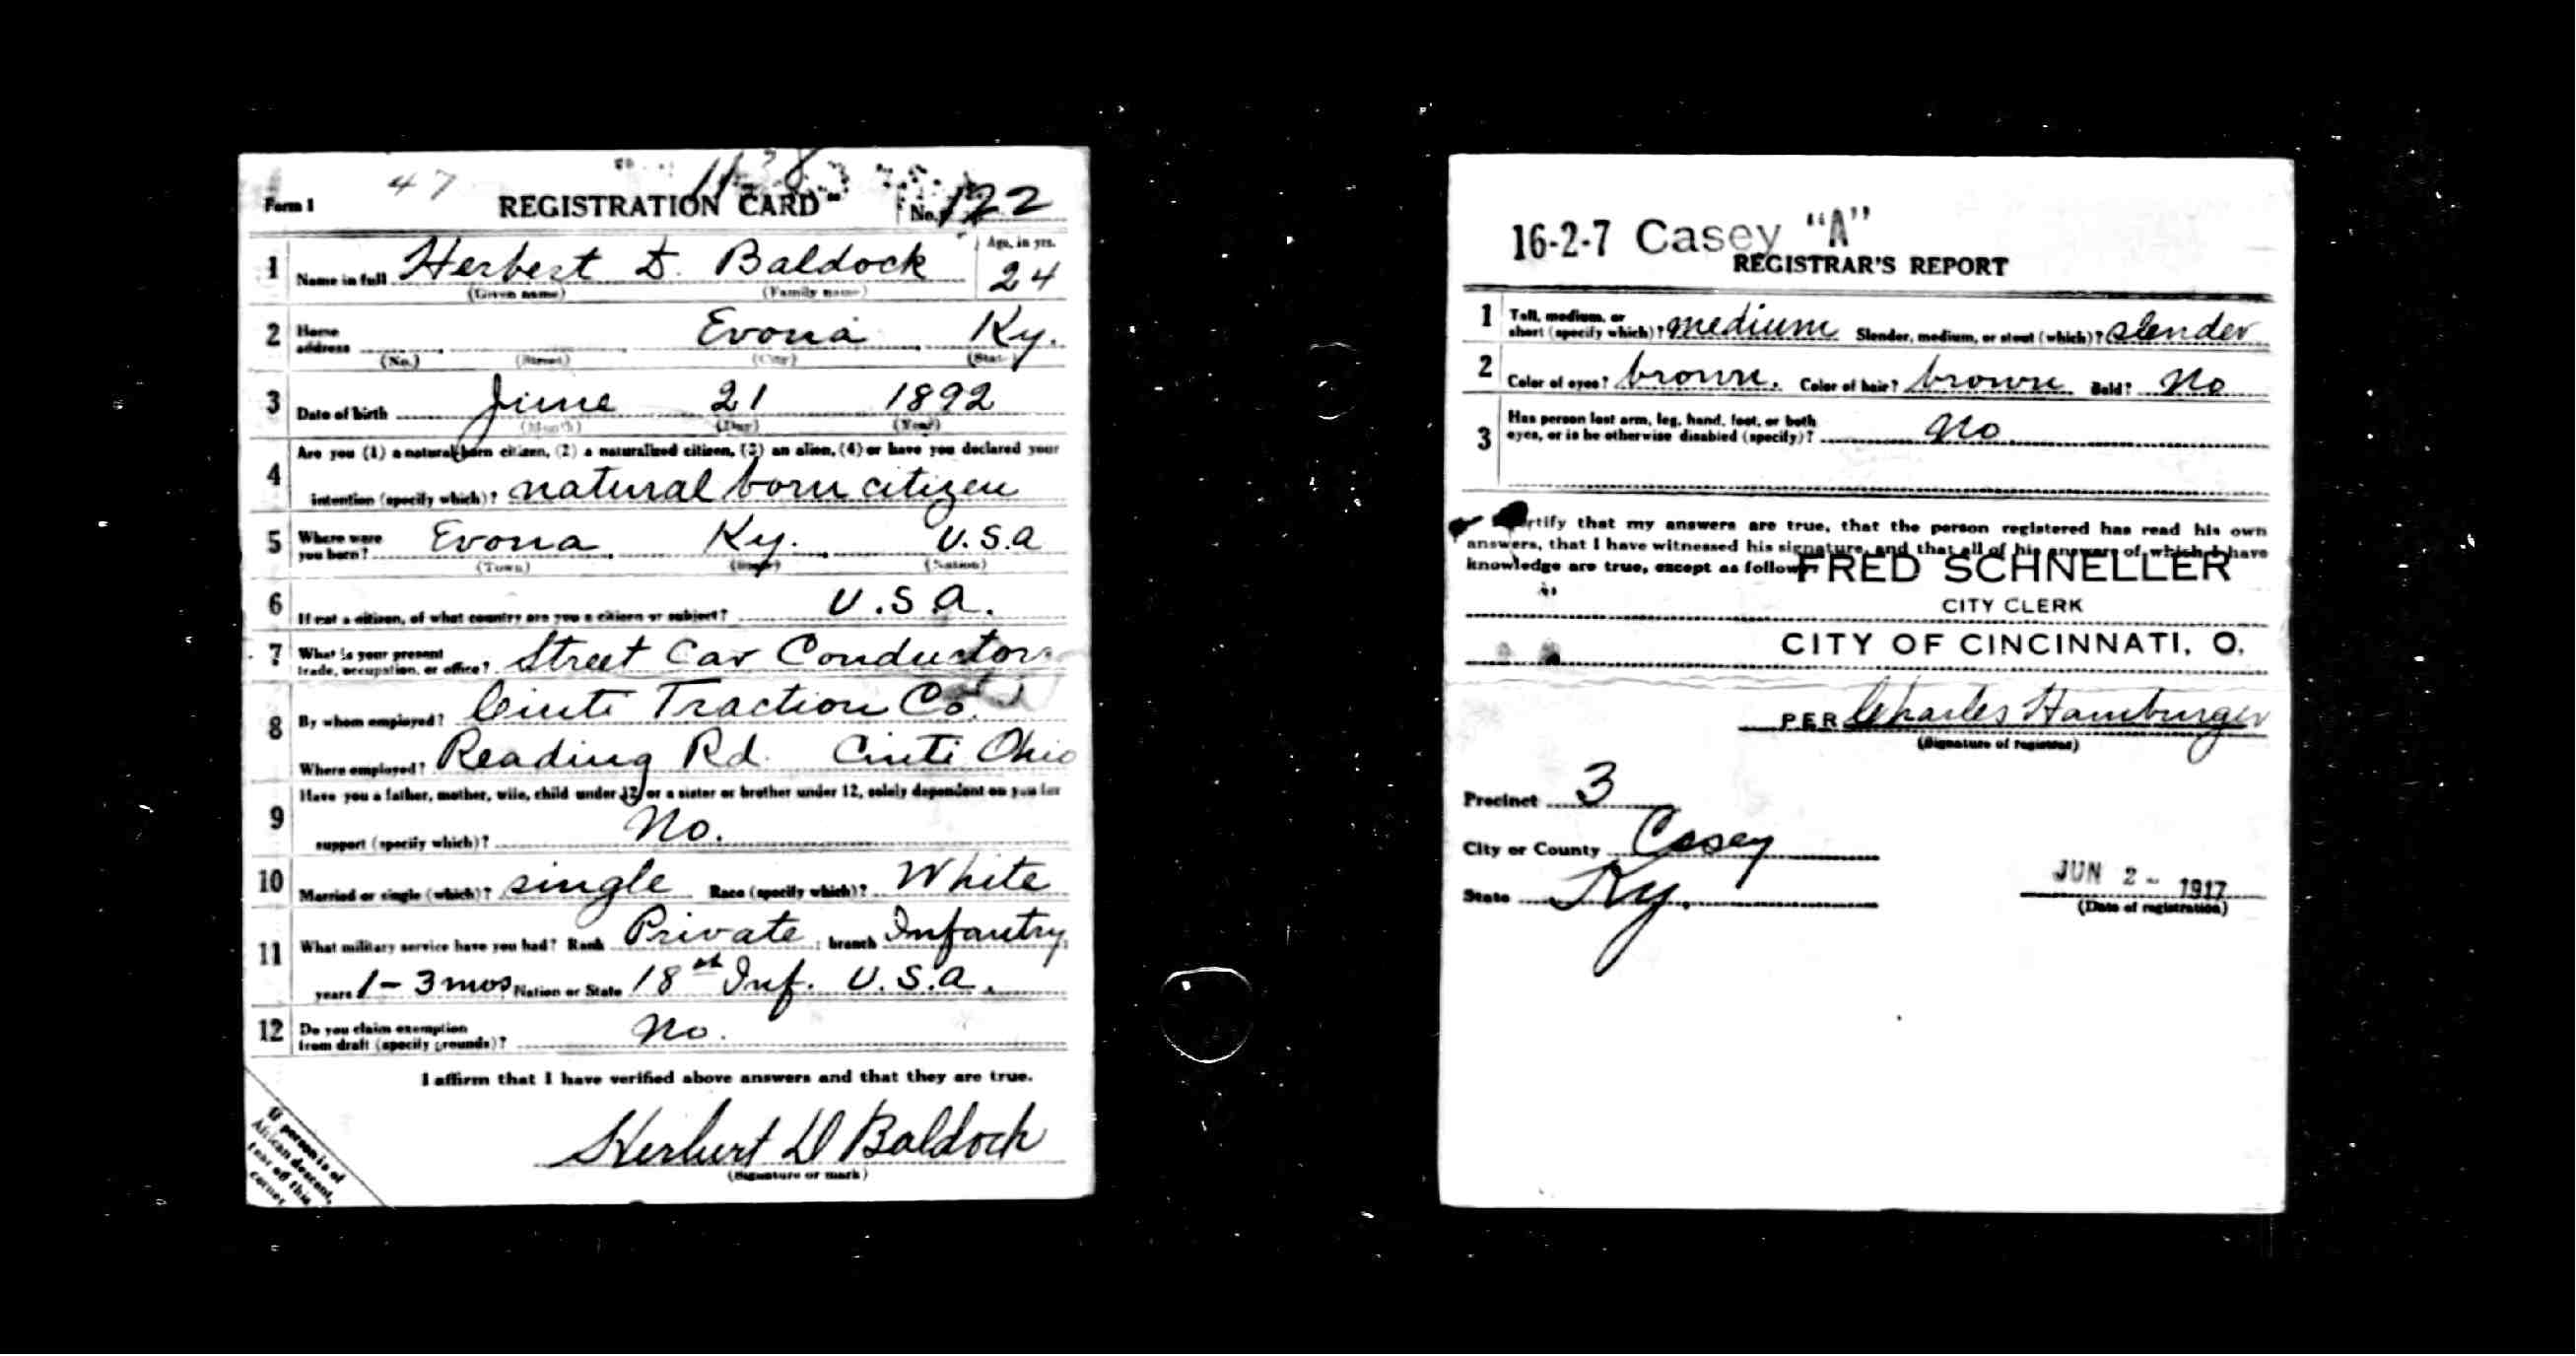 47
Form 1 REGISTRATION CARD No. 122
1 Name in full Herbert D. Baldock Age, in yrs. 24
(Given name) (Family name)
2 Home address Evona Ky.
(No.) (Street) (City) (State)
3 Date of birth June 21 1892
(Month) (Day) (Year)
4 Are you (1) a natural born citizen, (2) a naturalized citizen, (3) an alien, (4) or have you declared your
intention (specify which)? natural born citizen
5 Where were you born? Evona Ky. U.S.A
(Town) (State) (Nation)
6 If not a citizen, of what country are you a citizen or subject? U.S.A.
7 What is your present trade, occupation, or office? Street Car Conductor
8 By whom employed? Cinti Traction Co.
Where employed? Reading Rd. Cinti Ohio
9 Have you a father, mother, wife, child under 12, or a sister or brother under 12, solely dependent on you for
support (specify which)? No.
10 Married or single (which)? single Race (specify which)? White
11 What military service have you had? Rank Private ; branch Infantry
years 1-3 mos Nation or State 18th Inf. U.S.A.
12 Do you claim exemption from draft (specify grounds)? No.
I affirm that I have verified above answers and that they are true.
Herbert D Baldock
(Signature or mark)
If person is of
African descent,
tear off this
corner.
16-2-7 Casey "A"
REGISTRAR'S REPORT
1 Tall, medium, or short (specify which)? medium Slender, medium, or stout (which)? slender
2 Color of eyes? brown. Color of hair? brown Bald? No
3 Has person lost arm, leg, hand, foot, or both eyes, or is he otherwise disabled (specify)? No
certify that my answers are true, that the person registered has read his own
answers, that I have witnessed his signature, and that all of his answers of which I have
knowledge are true, except as follows:
FRED SCHNELLER
CITY CLERK
CITY OF CINCINNATI, O.
PER Charles Hamburger
(Signature of registrar)
Precinct 3
City or County Casey
State Ky.
JUN 2 - 1917
(Date of registration)